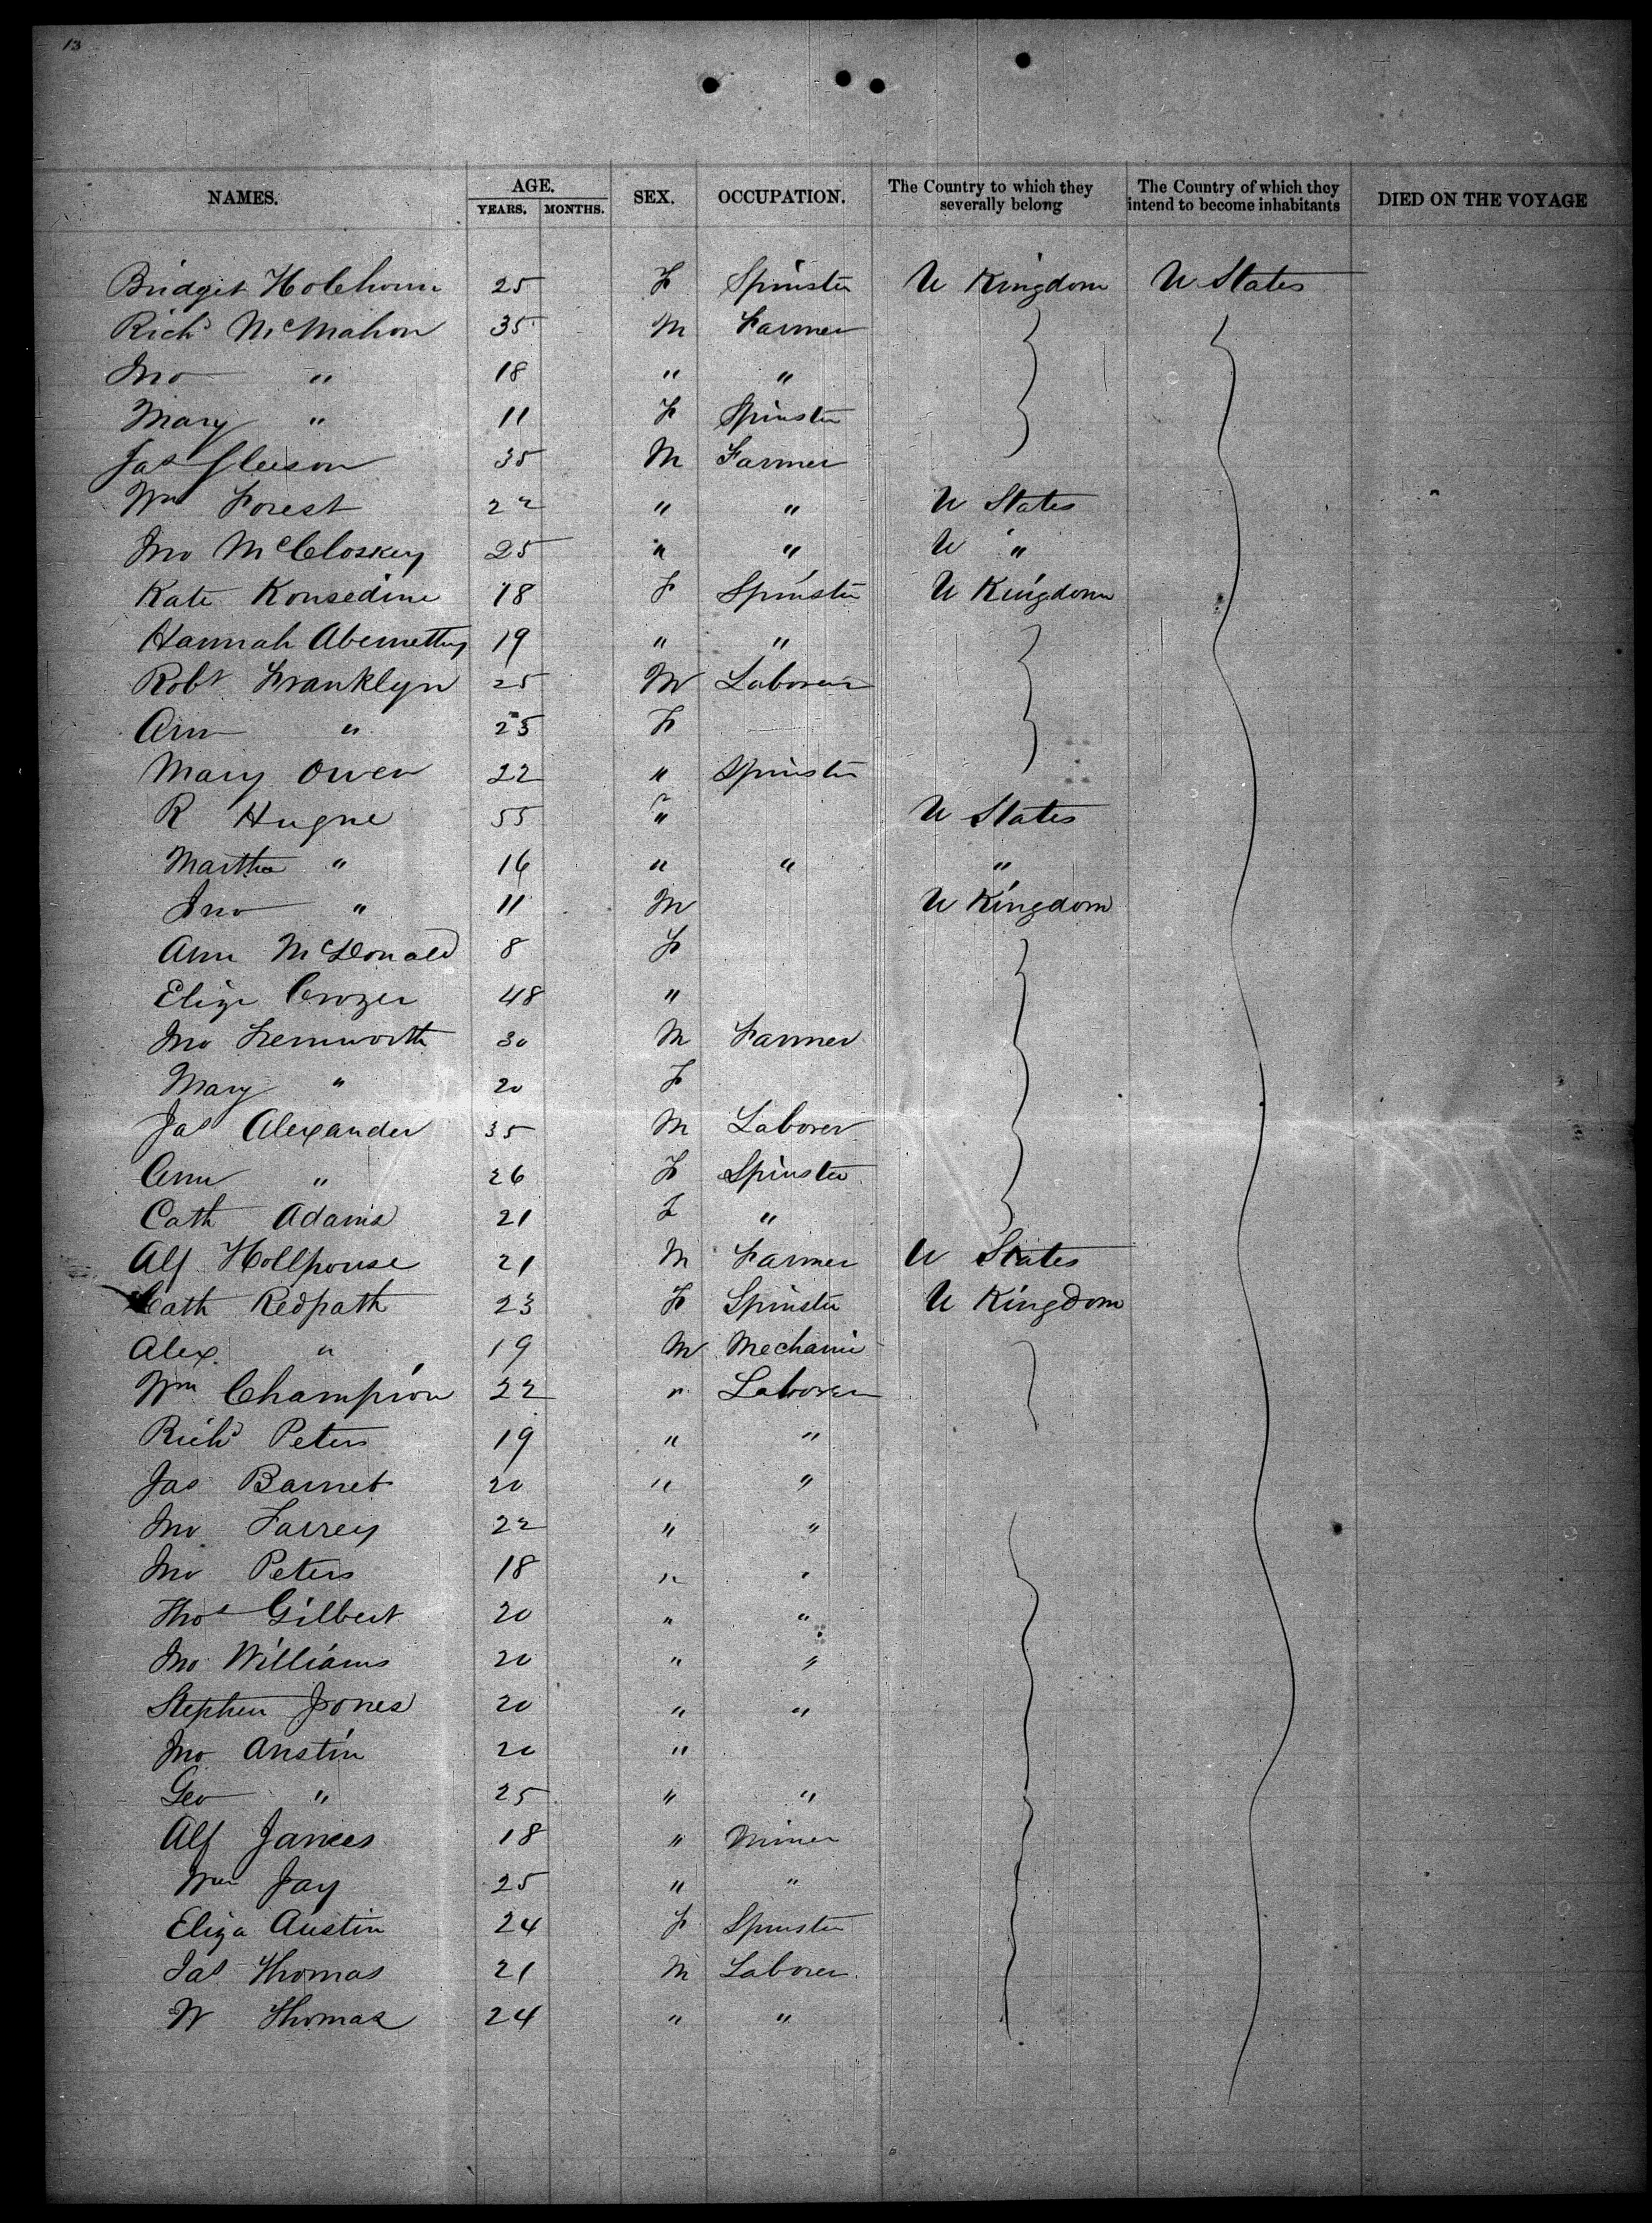 13
NAMES. AGE. YEARS. MONTHS. SEX. OCCUPATION. The Country to which they severally belong The Country of which they intend to become inhabitants DIED ON THE VOYAGE
Bridget 25 F Spinster U Kingdom U States
Richd McMahon 35 M Farmer
Jno " 18 " "
Mary " 11 F Spinster
Jas Gleeson 35 M Farmer
Wm Forest 22 " " U States
Jno McCloskey 25 " " U "
Kate Konsedine 18 F Spinster U Kingdom
Hannah Abernethy 19 " "
Robt Franklyn 25 M Laborer
Ann " 25 F
Mary Owen 22 " Spinster
R Hugne 55 " U States
Martha " 16 " " "
Jno " 11 M U Kingdom
Ann McDonald 8 F
Eliza Crozer 48 "
Jno 30 M Farmer
Mary " 20 F
Jas Alexander 35 M Laborer
Ann " 26 F Spinster
Cath Adams 21 F "
Alf Hollhouse 21 M Farmer U States
Cath Redpath 23 F Spinster U Kingdom
Alex. " 19 M Mechanic
Wm Champion 22 " Laborer
Richd Peters 19 " "
Jas Barnet 20 " "
Jno 22 " "
Jno Peters 18 " "
Thos Gilbert 20 " "
Jno Williams 20 " "
Stephen Jones 20 " "
Jno Austin 20 "
Geo " 25 " "
Alf James 18 " Miner
Wm Jay 25 " "
Eliza Austin 24 F Spinster
Jas Thomas 21 M Laborer
W Thomas 24 " "